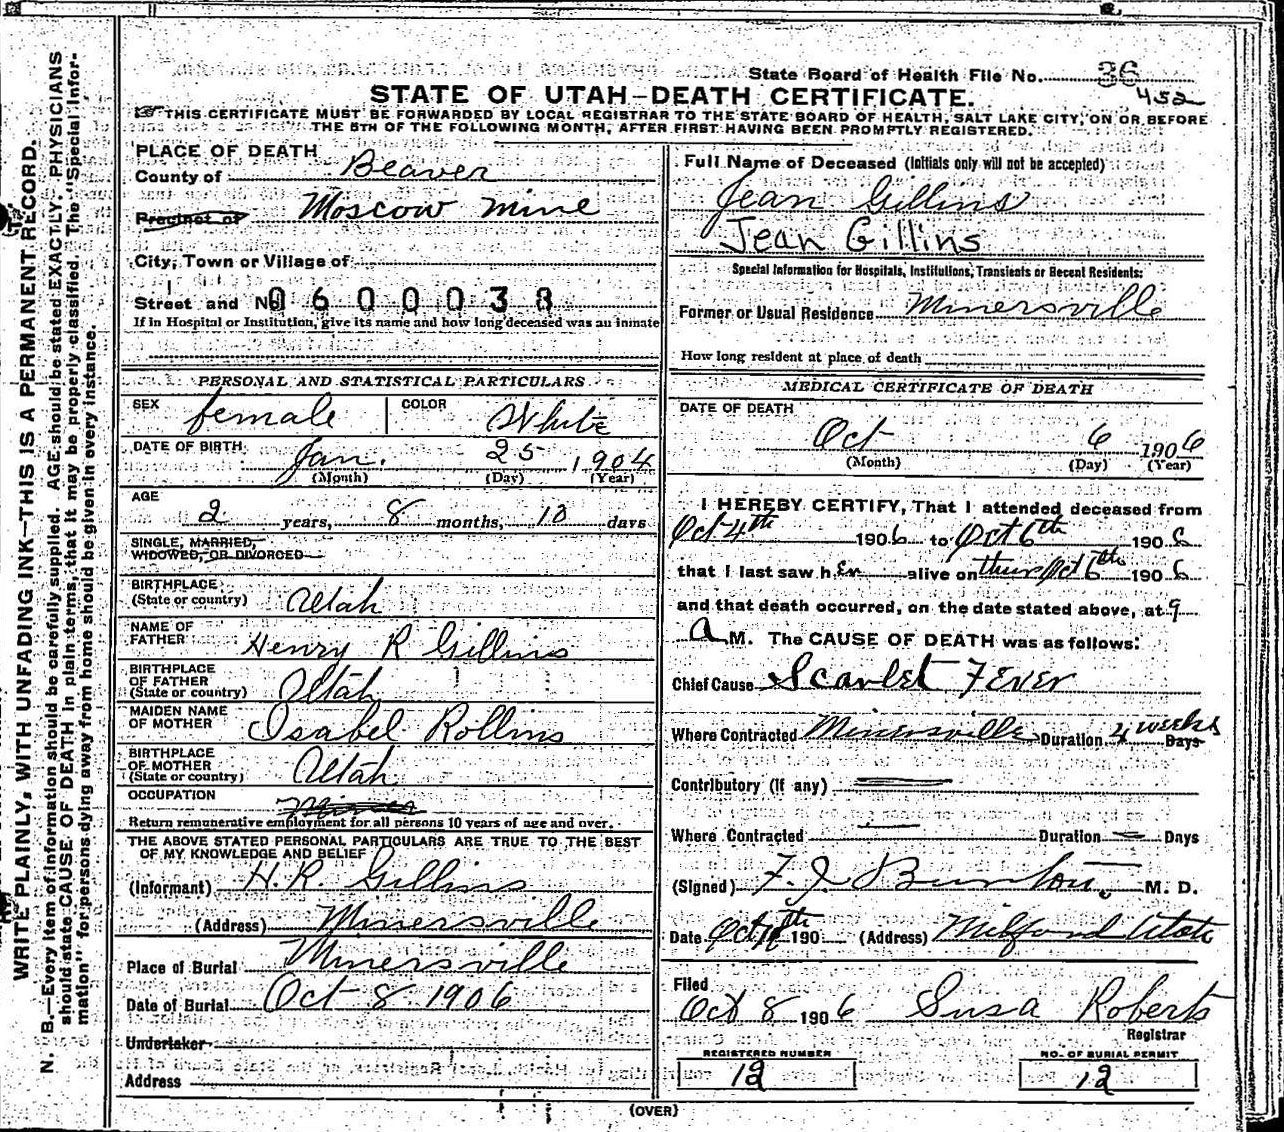 State Board of Health File No. 36
452
STATE OF UTAH—DEATH CERTIFICATE.
☞ THIS CERTIFICATE MUST BE FORWARDED BY LOCAL REGISTRAR TO THE STATE BOARD OF HEALTH, SALT LAKE CITY, ON OR BEFORE
THE 5TH OF THE FOLLOWING MONTH, AFTER FIRST HAVING BEEN PROMPTLY REGISTERED.
WRITE PLAINLY, WITH UNFADING INK—THIS IS A PERMANENT RECORD.
N. B.—Every item of information should be carefully supplied. AGE should be stated EXACTLY. PHYSICIANS
should state CAUSE OF DEATH in plain terms, that it may be properly classified. The "Special Infor-
mation" for persons dying away from home should be given in every instance.
PLACE OF DEATH
County of Beaver
Precinct of Moscow Mine
City, Town or Village of
Street and No. 0600038
If in Hospital or Institution, give its name and how long deceased was an inmate
PERSONAL AND STATISTICAL PARTICULARS
SEX female COLOR White
DATE OF BIRTH Jan. 25 1904
(Month) (Day) (Year)
AGE
2 years, 8 months, 10 days
SINGLE, MARRIED,
WIDOWED, OR DIVORCED
BIRTHPLACE
(State or country) Utah
NAME OF
FATHER Henry R Gillins
BIRTHPLACE
OF FATHER
(State or country) Utah
MAIDEN NAME
OF MOTHER Isabel Rollins
BIRTHPLACE
OF MOTHER
(State or country) Utah
OCCUPATION
Return remunerative employment for all persons 10 years of age and over.
THE ABOVE STATED PERSONAL PARTICULARS ARE TRUE TO THE BEST
OF MY KNOWLEDGE AND BELIEF
(Informant) H. R. Gillins
(Address) Minersville
Place of Burial Minersville
Date of Burial Oct 8 1906
Undertaker
Address
Full Name of Deceased (Initials only will not be accepted)
Jean Gillins
Jean Gillins
Special Information for Hospitals, Institutions, Transients or Recent Residents:
Former or Usual Residence Minersville
How long resident at place of death
MEDICAL CERTIFICATE OF DEATH
DATE OF DEATH
Oct 6 1906
(Month) (Day) (Year)
I HEREBY CERTIFY, That I attended deceased from
Oct 4th 1906 to Oct 6th 1906
that I last saw her alive on Oct 6th 1906
and that death occurred, on the date stated above, at 9
A M. The CAUSE OF DEATH was as follows:
Chief Cause Scarlet Fever
Where Contracted Minersville Duration 4 weeks Days
Contributory (if any)
Where Contracted Duration Days
(Signed) F. J. Burton, M. D.
Date Oct 190 (Address) Milford Utah
Filed
Oct 8 1906 Susa Roberts
Registrar
REGISTERED NUMBER
12
NO. OF BURIAL PERMIT
12
(OVER)